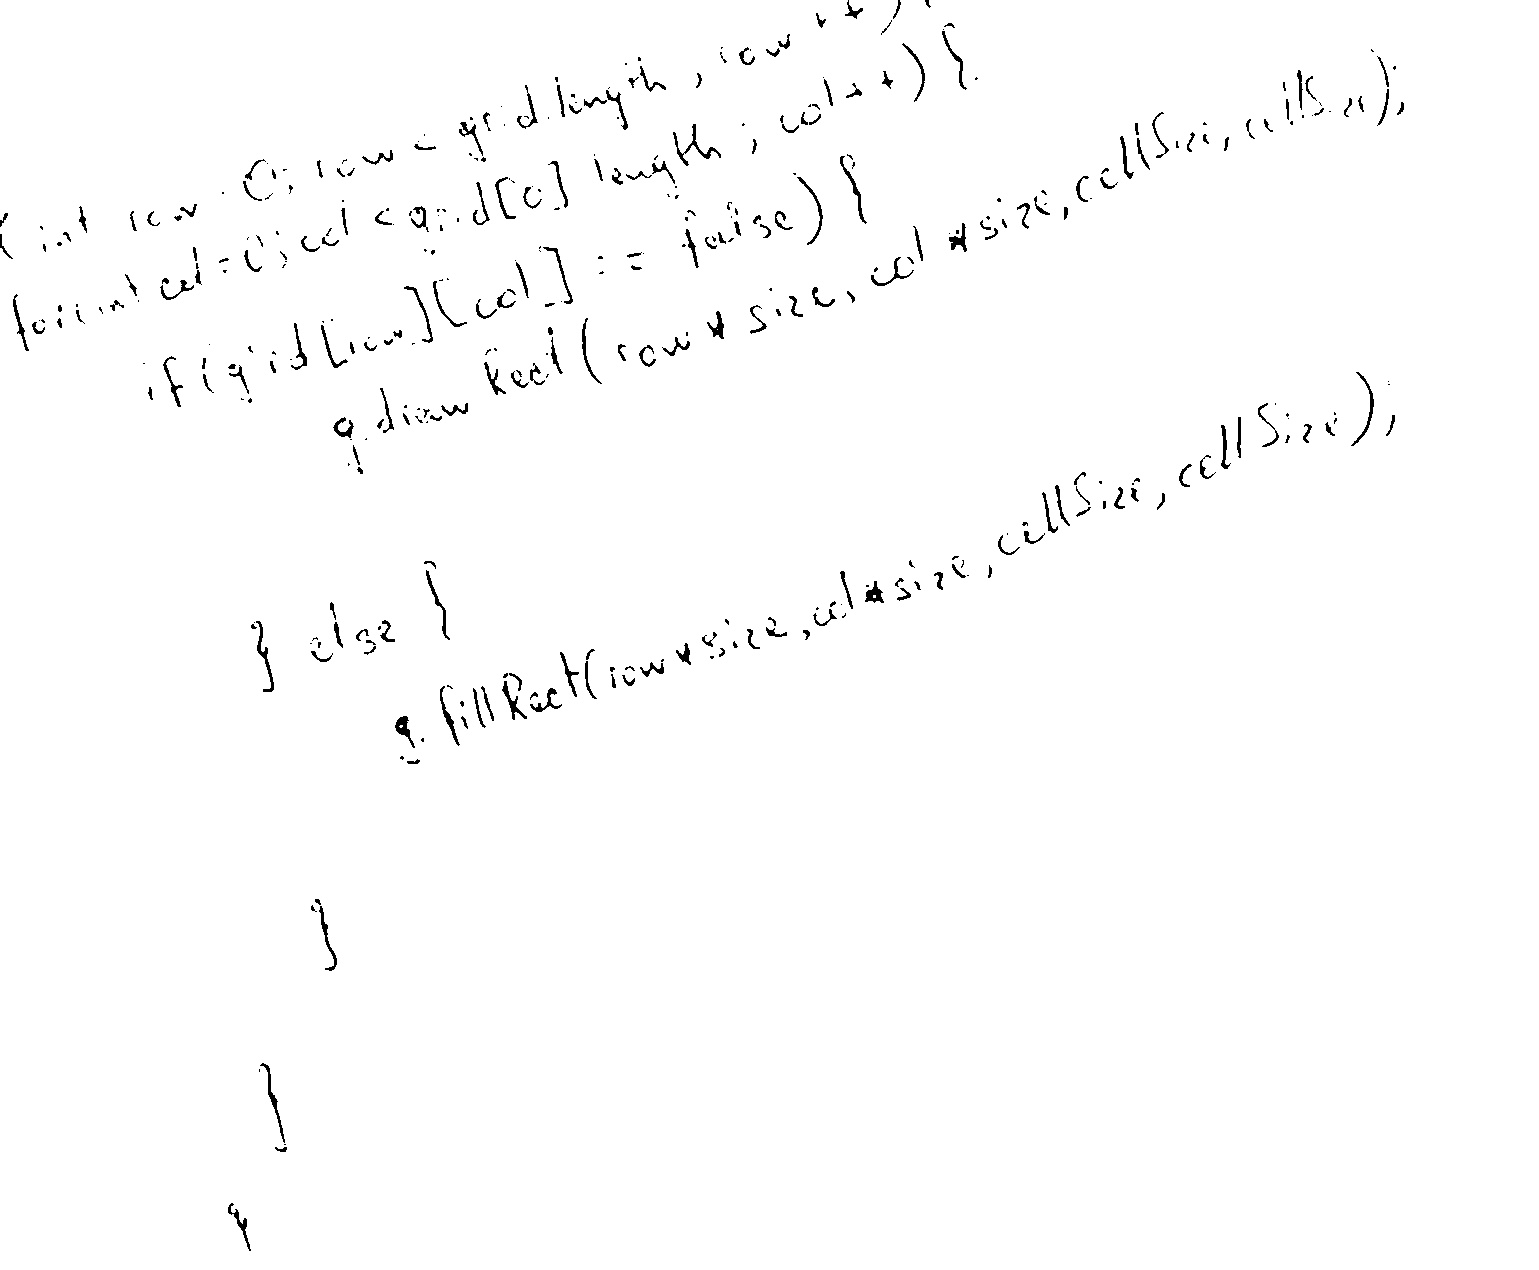 (int row = 0; row < grid.length; row++) {
for(int col = 0; col < grid[0].length; col++) {
if(grid[row][col] == false) {
g.drawRect(row * size, col * size, cellSize, cellSize);
} else {
g.fillRect(row * size, col * size, cellSize, cellSize);
}
}
}